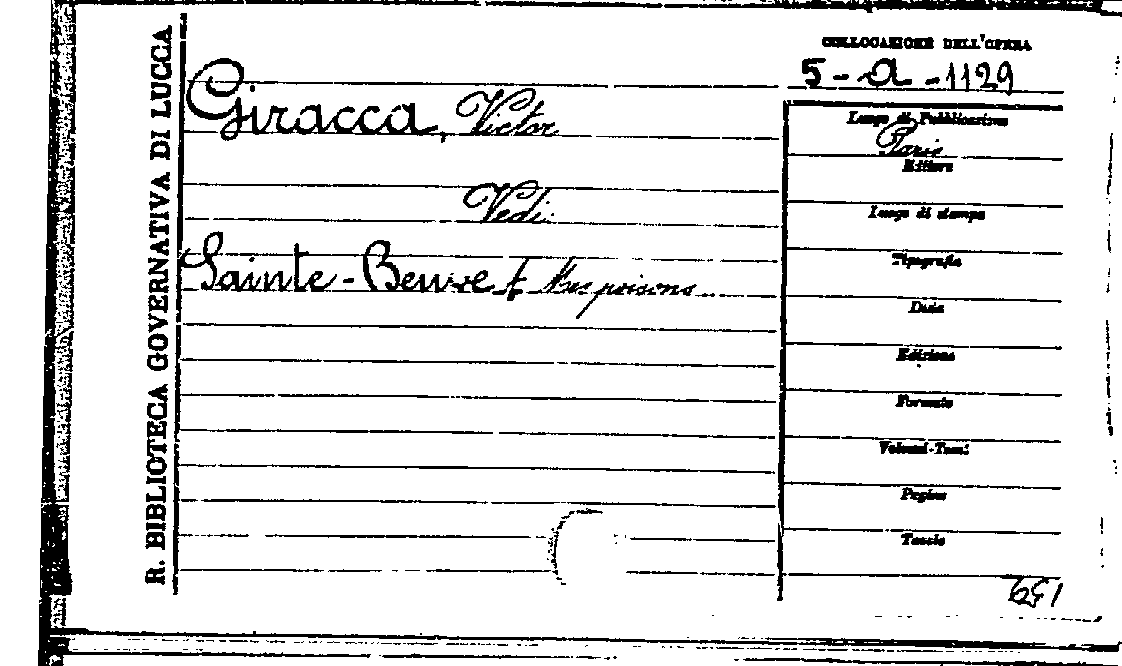 R. BIBLIOTECA GOVERNATIVA DI LUCCA
COLLOCAZIONE DELL'OPERA
5-a-1129
Giracca, Victor
Vedi:
Sainte-Beuve Mes poisons
Luogo di Pubblicazione
Paris
Editore
Luogo di stampa
Tipografia
Data
Edizione
Formato
Volumi-Tomi
Pagine
Tavole